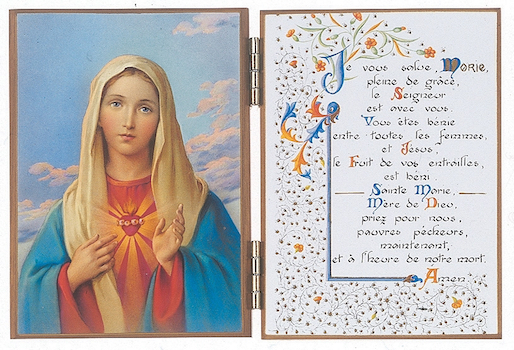 Je vous salue, Marie,
pleine de grâce,
le Seigneur
est avec vous.
Vous êtes bénie
entre toutes les femmes,
et Jésus,
le Fruit de vos entrailles,
est béni.
Sainte Marie,
Mère de Dieu,
priez pour nous,
pauvres pécheurs,
maintenant,
et à l'heure de notre mort.
Amen